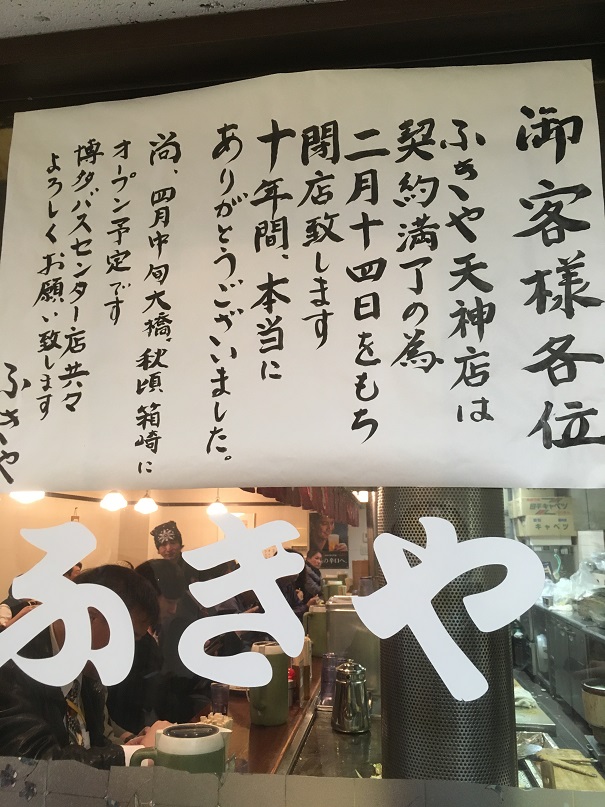 御客様各位
ふきや天神店は
契約満了の為
二月十四日をもち
閉店致します
十年間、本当に
ありがとうございました。
尚、四月中旬大橋、秋頃箱崎に
オープン予定です
博多バスセンター店共々
よろしくお願い致します
ふきや
ふきや